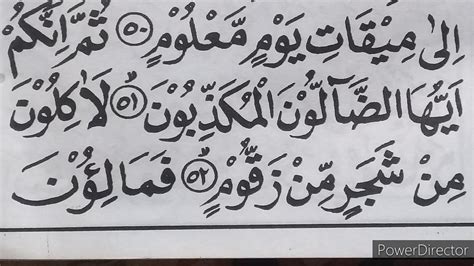 اِلٰى مِيْقَاتِ يَوْمٍ مَّعْلُوْمٍ ۝٥٠ ثُمَّ اِنَّكُمْ
اَيُّهَا الضَّآلُّوْنَ الْمُكَذِّبُوْنَ ۝٥١ لَاٰكِلُوْنَ
مِنْ شَجَرٍ مِّنْ زَقُّوْمٍ ۝٥٢ فَمَالِـُٔوْنَ
PowerDirector